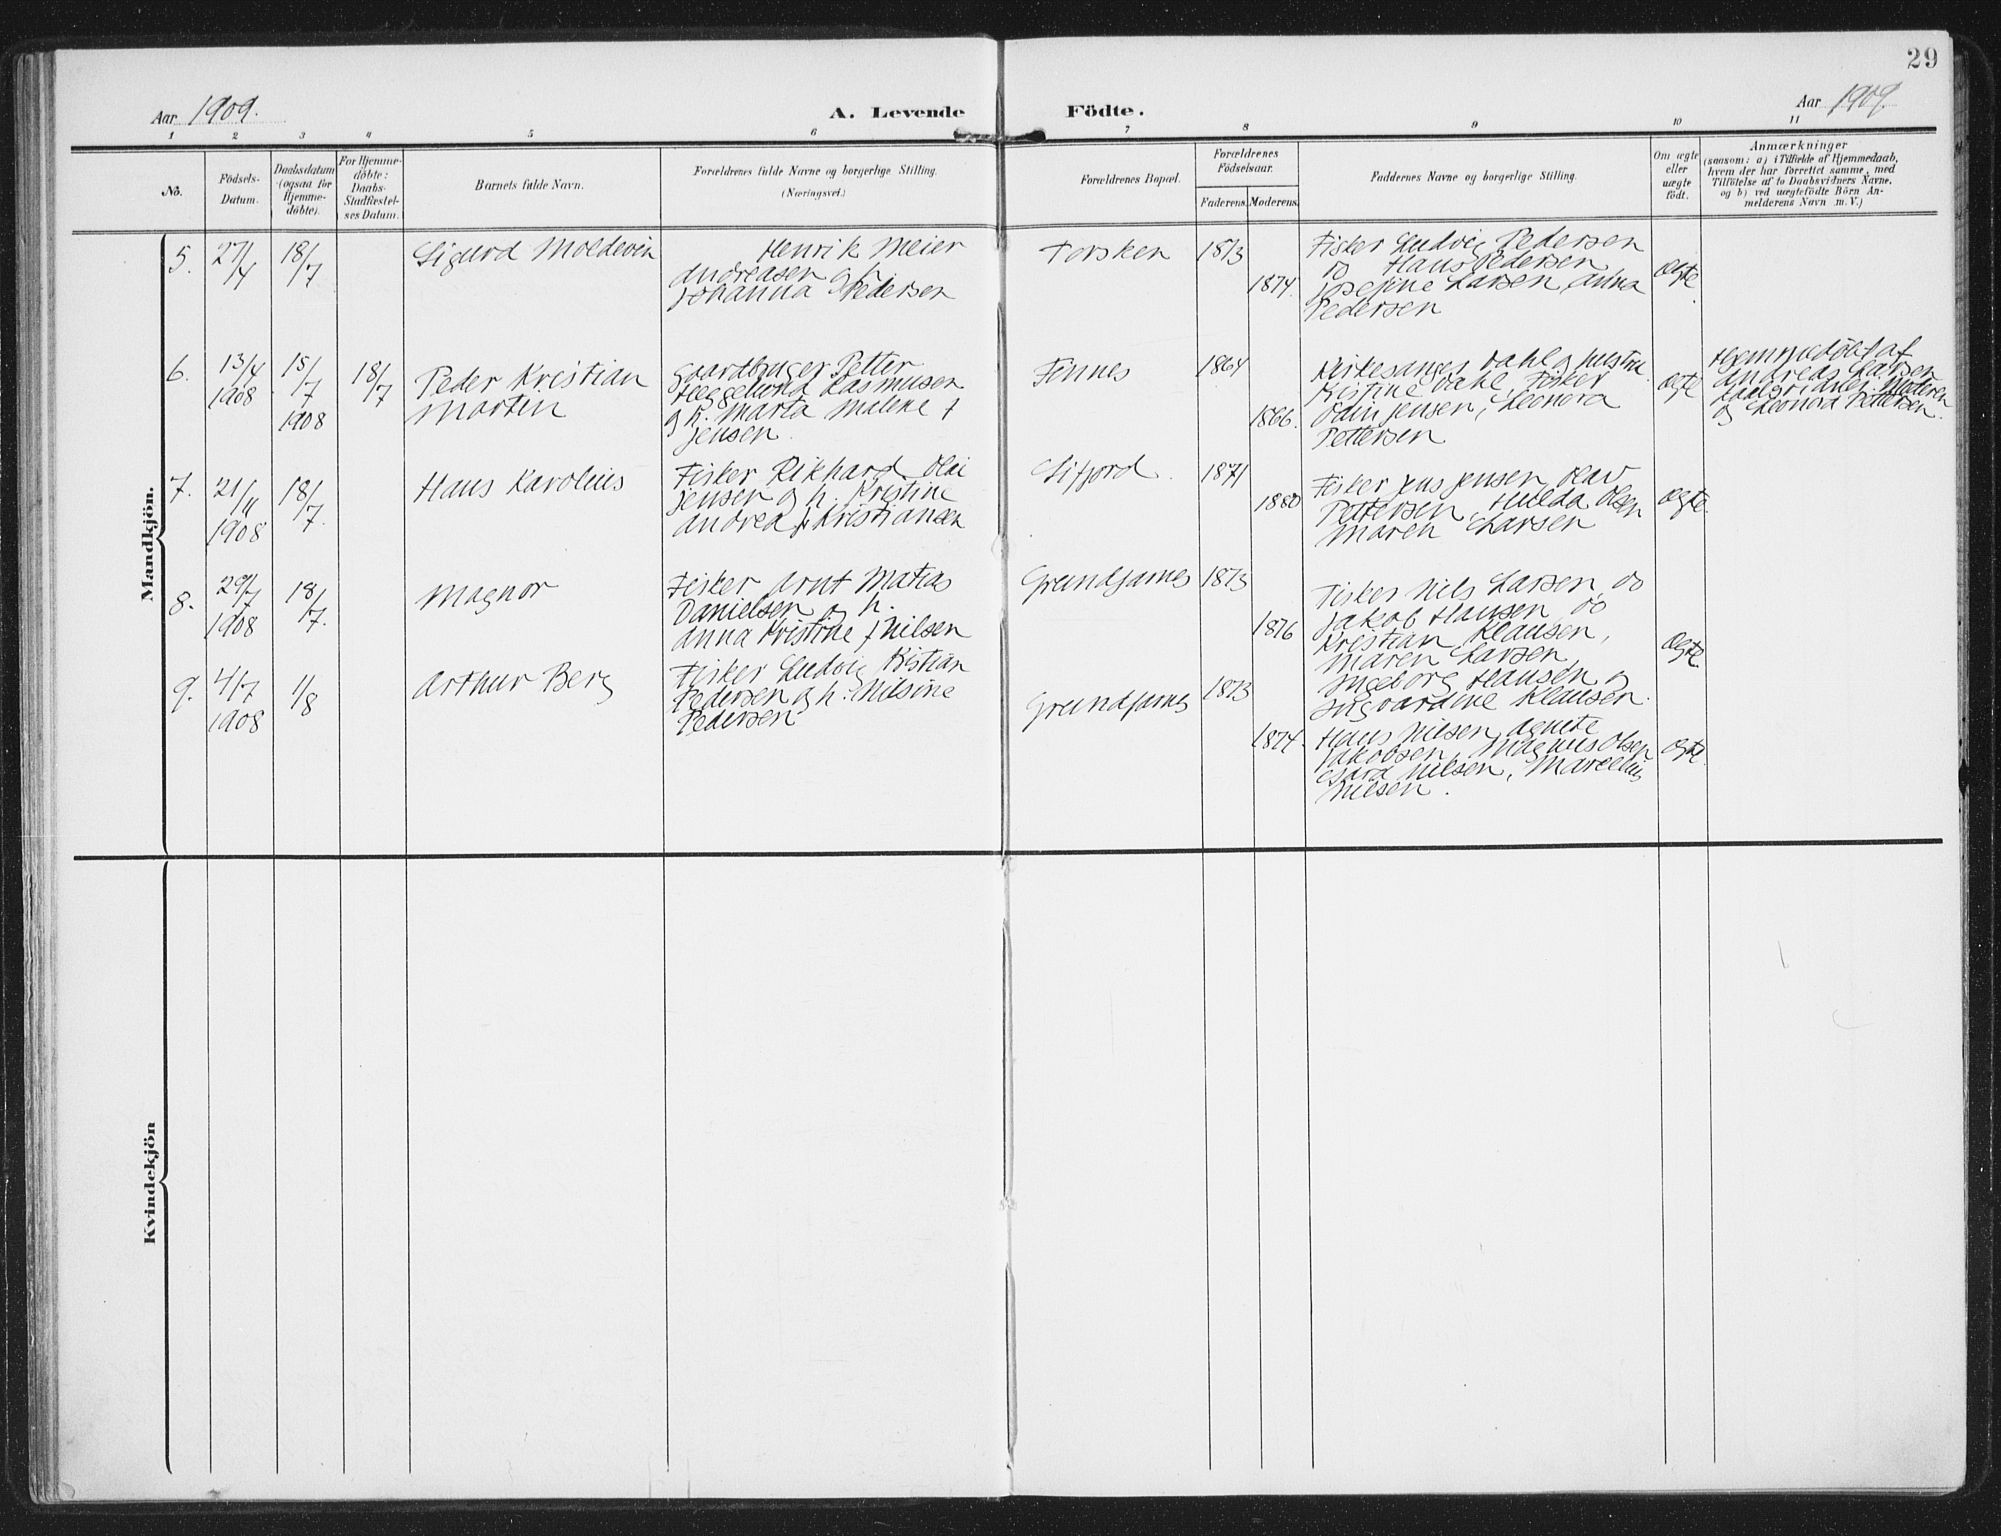 29
Aar 1909.
A. Levende Födte.
Aar 1909.
1 2 3 4 5 6 7 8 9 10 11
No.
Födsels-
Datum.
Daabsdatum
(ogsaa for
Hjemme-
döbte).
For Hjemme-
döbte:
Daabs-
Stadfæstel-
ses Datum.
Barnets fulde Navn.
Forældrenes fulde Navne og borgerlige Stilling.
(Næringsvei.)
Forældrenes Bopæl.
Forældrenes
Födselsaar.
Faderens. Moderens.
Faddernes Navne og borgerlige Stilling.
Om ægte
eller
uægte
födt.
Anmærkninger
(saasom: a) i Tilfælde af Hjemmedaab,
hvem der har forrettet samme, med
Tilföielse af to Daabsvidners Navne,
og b) ved uegtefödte Börn An-
melderens Navn m. V.)
Mandkjön.
5.
27/4
18/7
Sigurd Moldevin
Henrik Meier
Andreasen og h
Johanna Pedersen
Torsken
1873
1874.
Fisker Ludvig Pedersen
do Hans Pedersen
Josefine Larsen, Anna
Pedersen
Ægte.
6.
13/4
1908
15/7
1908
18/7
Peder Kristian
Martin
Gaardbruger Petter
Heggelund Rasmusen
og h. Marta Malene f
Jensen.
Finnes
1864
1866.
Kirkesanger Dahl og hustru
Kristine Dahl, Fisker
Odin Jensen, Leonora
Pettersen
Ægte
Hjemmedöbt af
Andreas Larsen
Daabsvidner: Moderen
og Leonora Pettersen.
7.
21/11
1908
18/7.
Hans Karolius
Fisker Rikhard Olai
Jensen og h. Kristine
Andrea f Kristiansen
Sifjord.
1871
1880
Fisker Jens Jensen Olav
Pettersen, Hulda Olsen
Maren Larsen
Ægte.
8.
29/7
1908
18/7.
Magnor
Fisker Arnt Matias
Danielsen og h.
Anna Kristine f Nilsen
Grundfarnes
1873
1876
Fisker Nils Larsen, do
Jakob Hansen do
Kristian Klausen,
Maren Larsen,
Ingeborg Hansen og
Ingvardine Klausen.
Ægte
9.
4/7
1908
1/8
Arthur Berg
Fisker Ludvig Kristian
Pedersen og h. Nilsine
Pedersen
Grundfarnes
1873
1874.
Hans Nilsen, Agnete
Jakobsen, Magnus Olsen
Nilsen, Marcelius
Nilsen.
Ægte.
Kvindekjön